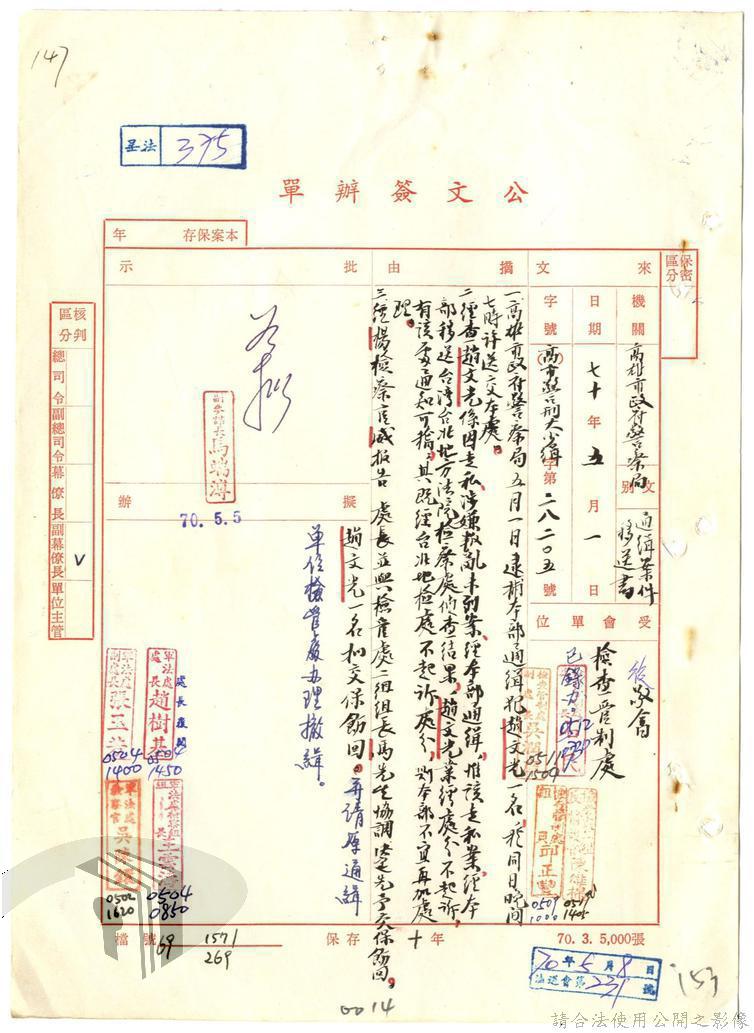 147
荃法 375
公文簽辦單
本案保存 年
保密區分
來文
機關 高雄市政府警察局
文別 通緝案件移送書
日期 七十年五月一日
字號 高市警刑大字第二八二〇五號
受會單位
檢查管制處
後敬會
摘由
一、高雄市政府警察局五月一日逮捕本部通緝犯趙文光一名,於同日晚間
七時許送交本處。
二、經查趙文光係因走私涉嫌叛亂未到案,經本部通緝,惟該走私案,經本
部移送台灣台北地方法院檢察處偵查結果,趙文光業經處分不起訴,
有該處通知可稽,其既經台北地檢處不起訴處分,則本部不宜再加處
理。
三、經楊檢察官咸報告 處長並與檢管處二組組長馬先生協調決定先予交保飭回。
批示
副參謀長馬瑞溥
70.5.5
擬辦
趙文光一名擬交保飭回。并請原通緝
單位檢管處办理撤緝。
核判區分
總司令
副總司令
幕僚長
副幕僚長 V
單位主管
軍法處處長趙樹基
0504
1450
軍法處副處長張玉
0504
1400
0504
0850
0502
1620
0511
1509
0509
1000
1405
檔號 69 1571/269
保存 十年
70. 3. 5,000張
70年5月8日
法送會第231號
153
0014
請合法使用公開之影像